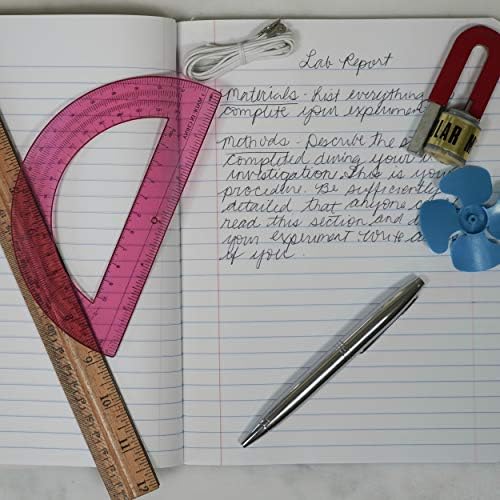 Lab Report
Materials - List everything
complete your experiment
Methods - Describe the
completed during your
investigation. This is your
procedure. Be sufficiently
detailed that anyone
read this section and
your experiment. Write
if you.
LAR M
9
10
11
12